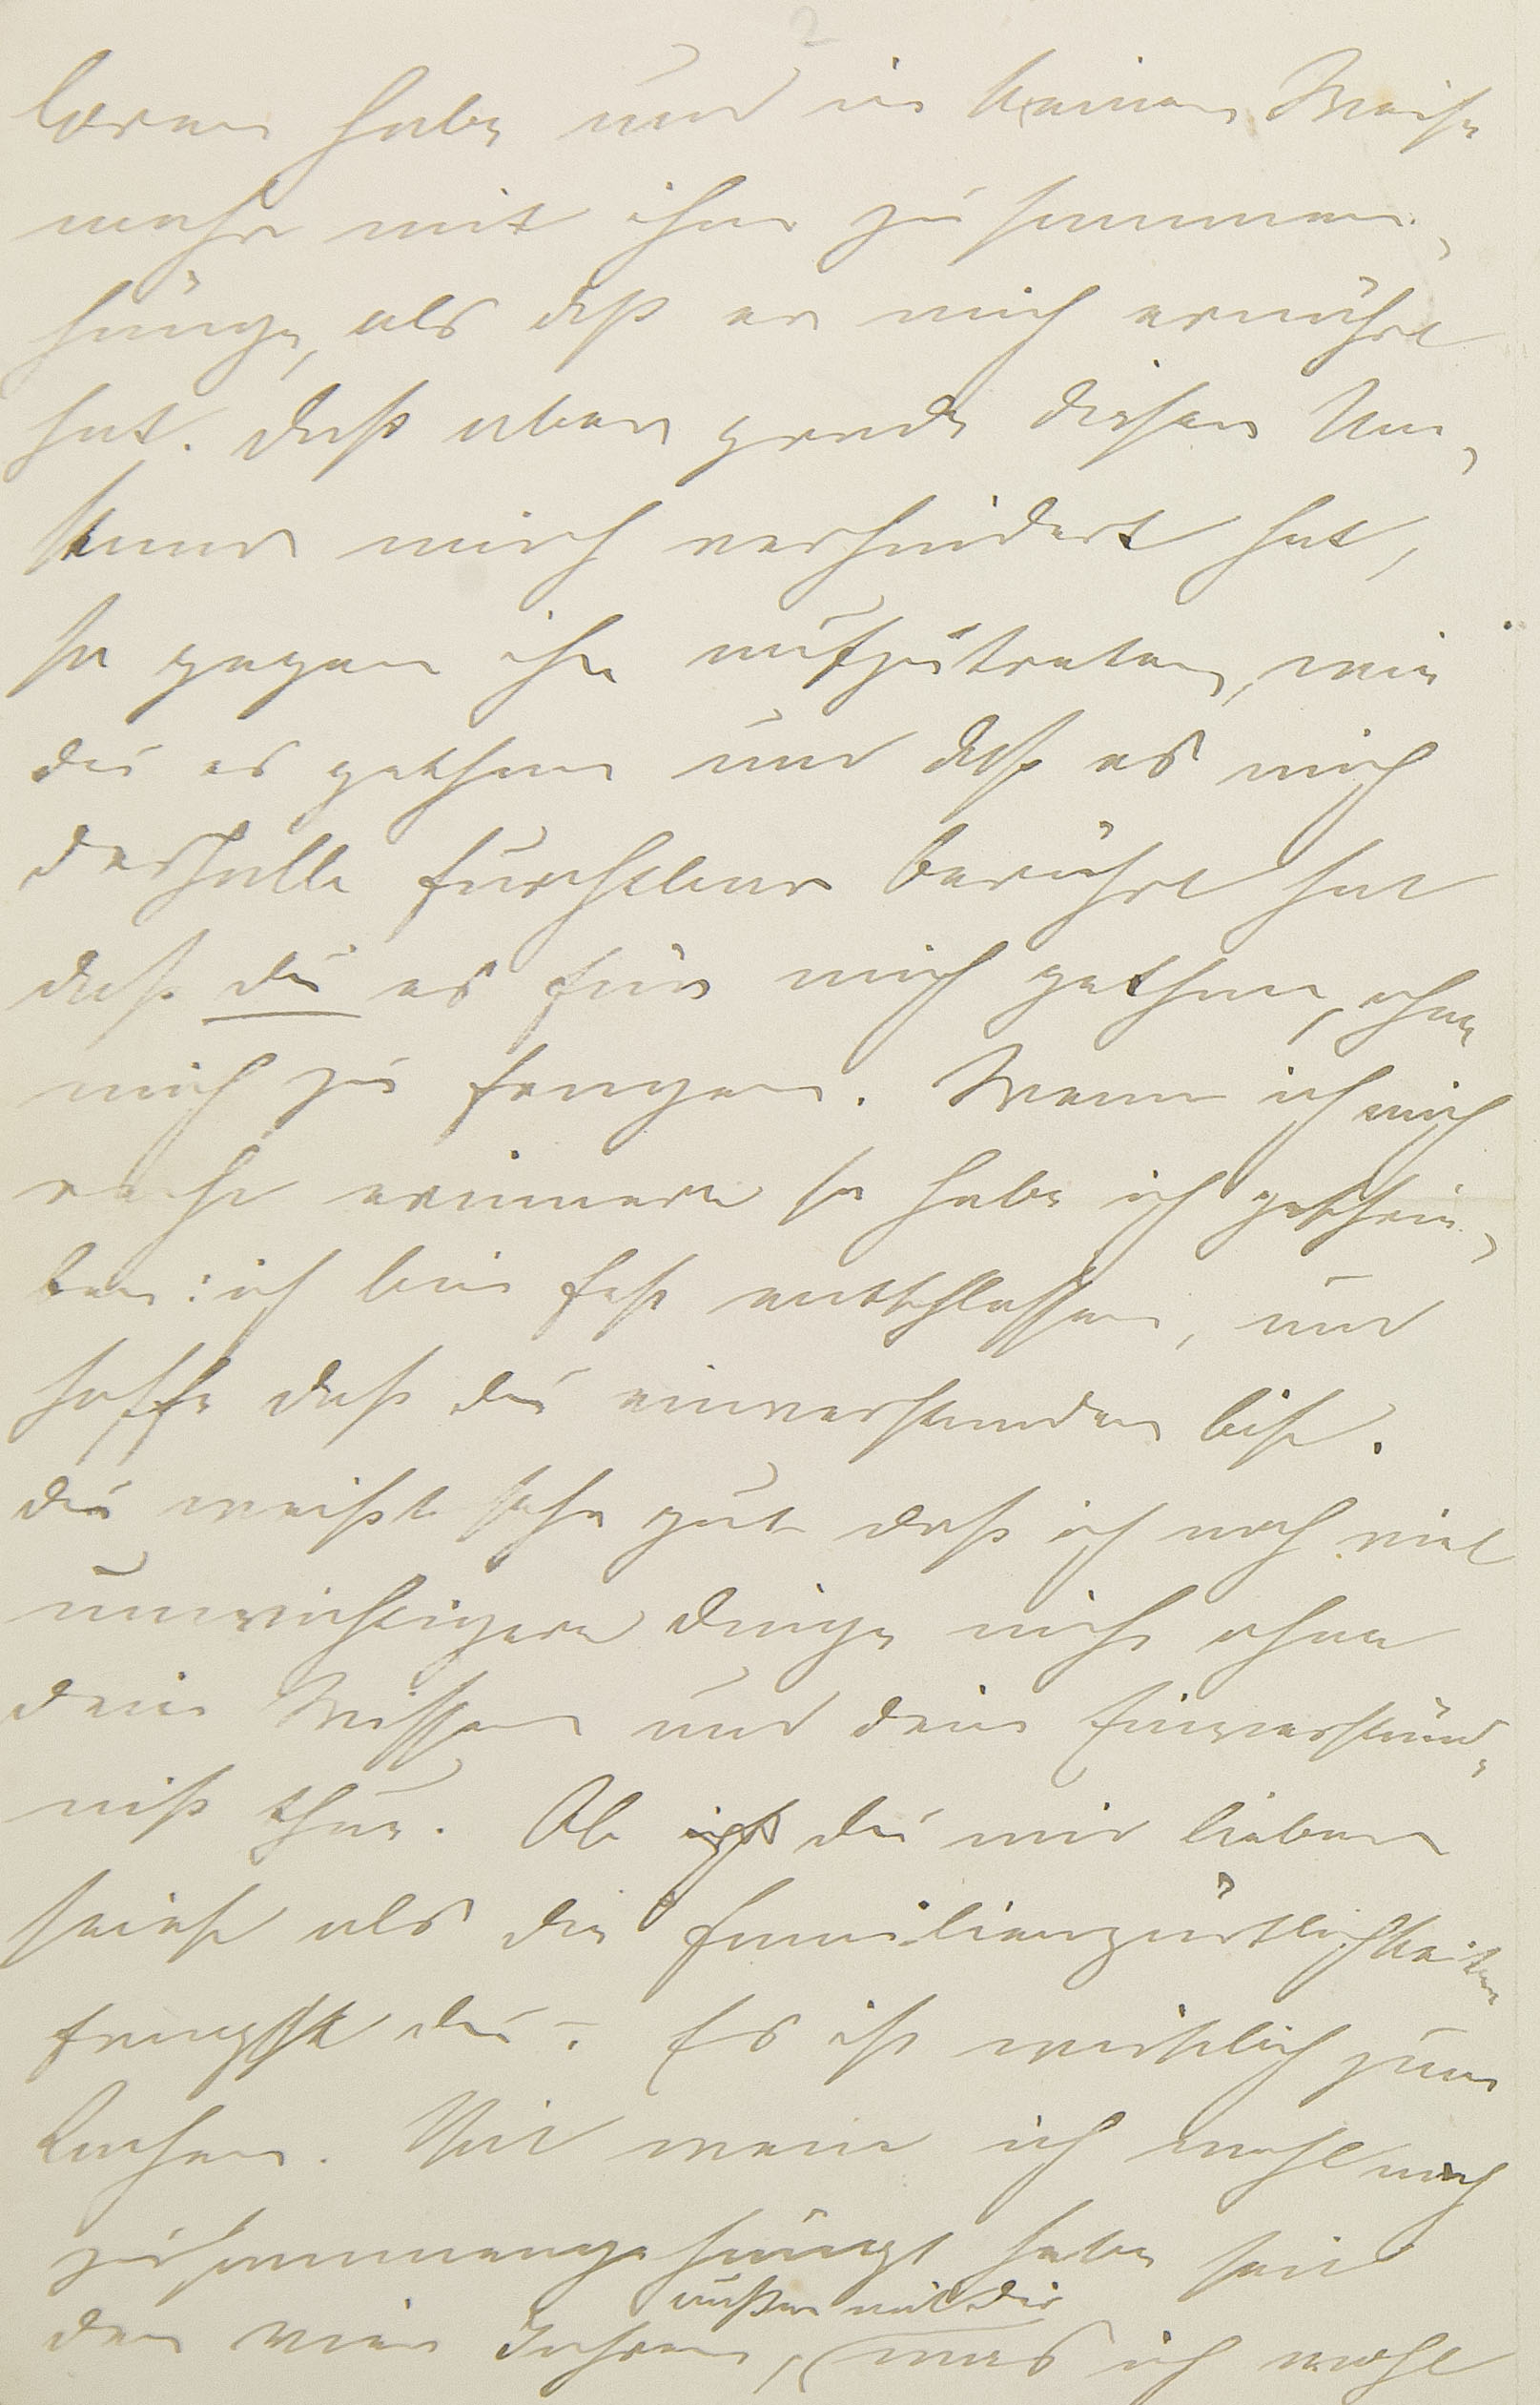 2
loren habe und in keiner Weise
mehr mit ihm zusammen-
hänge, als daß er mich ernährt
hat. Daß aber grade dieser Um-
stand mich verhindert hat,
so gegen ihn aufzutreten, wie
du es gethan und daß es mich
deshalb furchtbar berührt hat
daß du es für mich gethan, ohne
mich zu fragen. Wenn ich mich
recht erinnere so habe ich geschrie-
ben: ich bin fest entschlossen, und
hoffe daß du einverstanden bist.
Du weißt sehr gut daß ich noch viel
unwichtigere Dinge nicht ohne
dein Wissen und dein Einverständ-
niß thue. Ob du mir lieber
seiest als die Familienzärtlichkeiten
fragst du –. Es ist wirklich zum
Lachen. Mit wem ich wohl noch
zusammengehängt habe seit
außer mit dir
den vier Jahren, was ich wohl